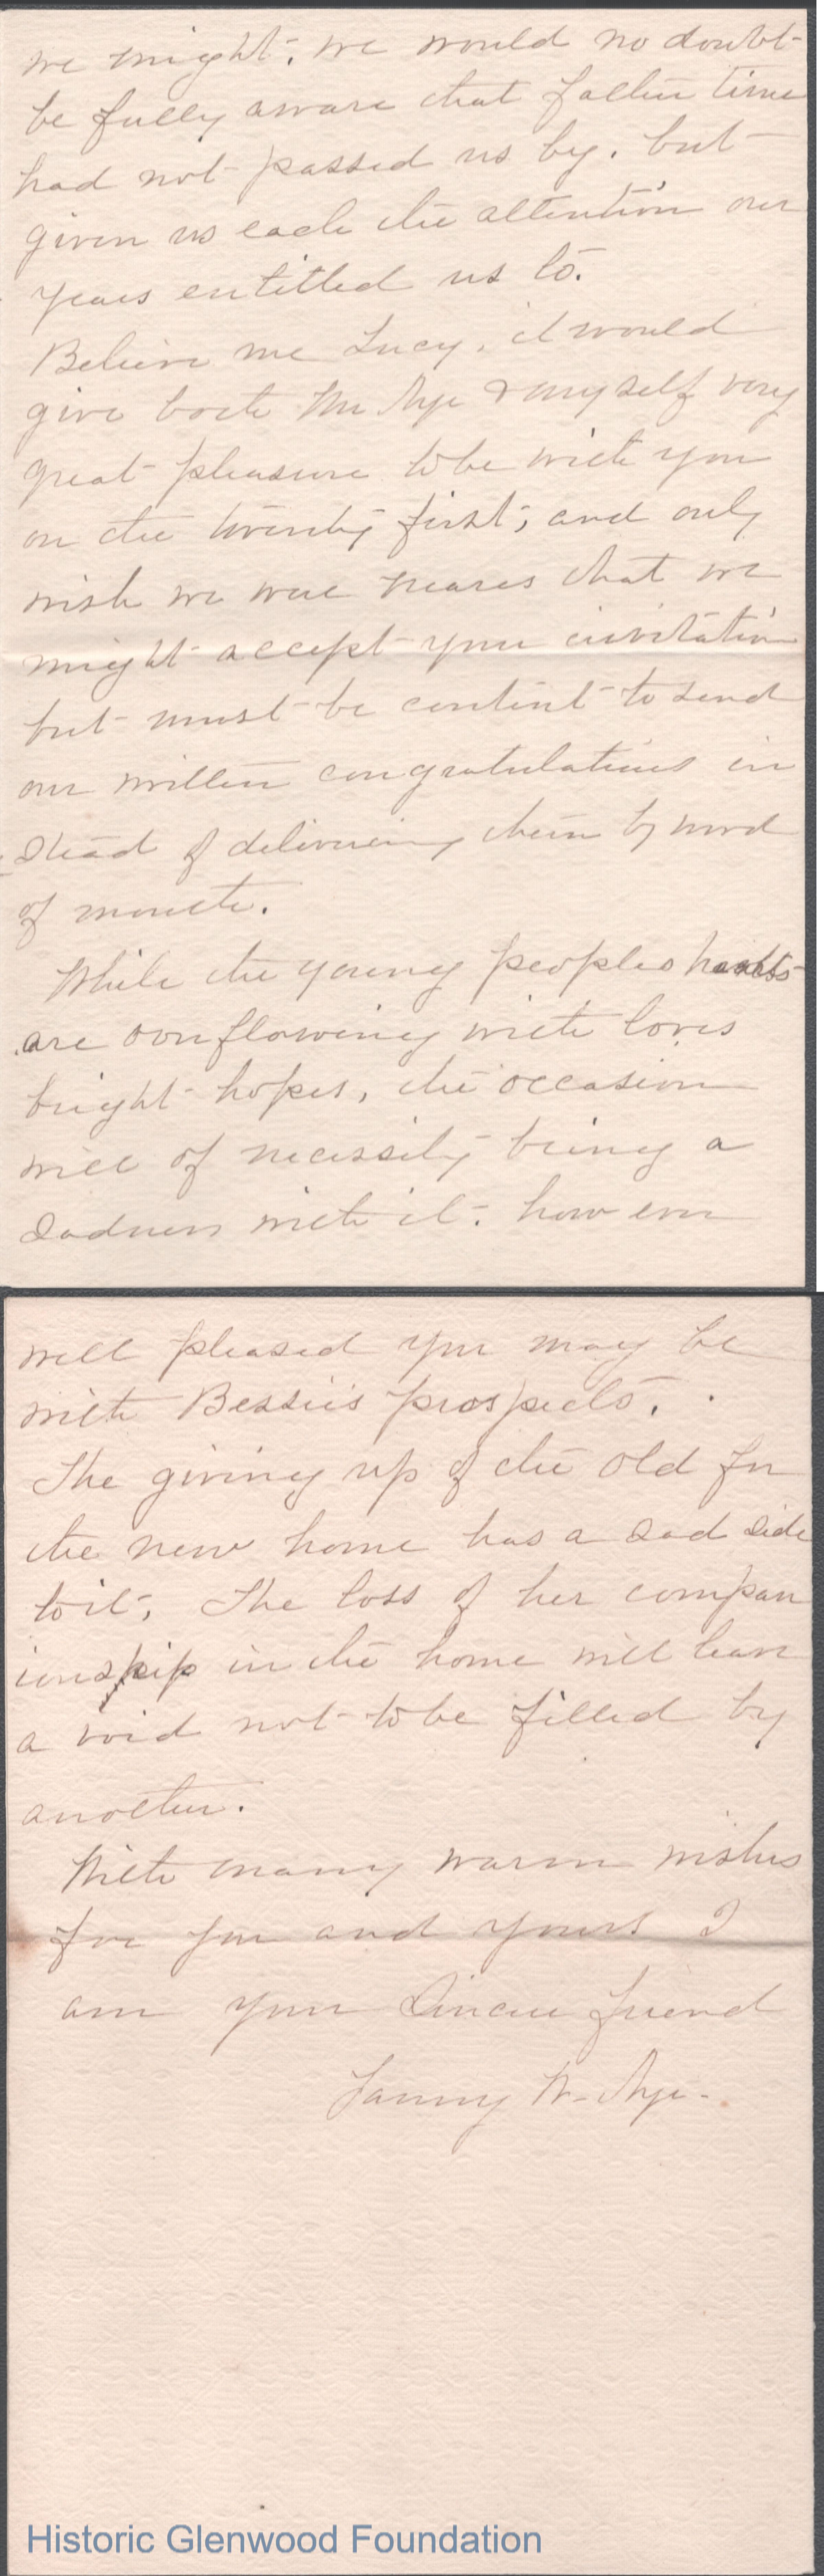 we might, we would no doubt
be fully aware that father time
had not passed us by, but
given us each the attention our
years entitled us to.
Believe me Lucy, it would
give both Mr Nye & myself very
great pleasure to be with you
on the twenty first, and only
wish we were nearer that we
might accept your invitation
but must be content to send
our written congratulations in
stead of delivering them by word
of mouth.
While the young peoples hearts
are overflowing with loves
bright hopes, the occasion
will of necessity bring a
sadness with it. how ever
well pleased you may be
with Bessie's prospects.
The giving up of the old for
the new home has a sad side
to it, The loss of her compan
ionship in the home will leave
a void not to be filled by
another.
With many warm wishes
for you and yours I
am your sincere friend
Fanny W. Nye.
Historic Glenwood Foundation